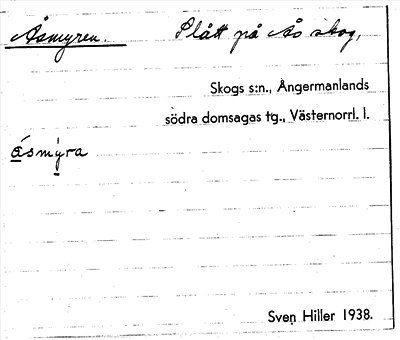 Åsmyren. Slått på Ås skog,
Skogs s:n., Ångermanlands
södra domsagas tg., Västernorrl. l.
ásmỳra
Sven Hiller 1938.